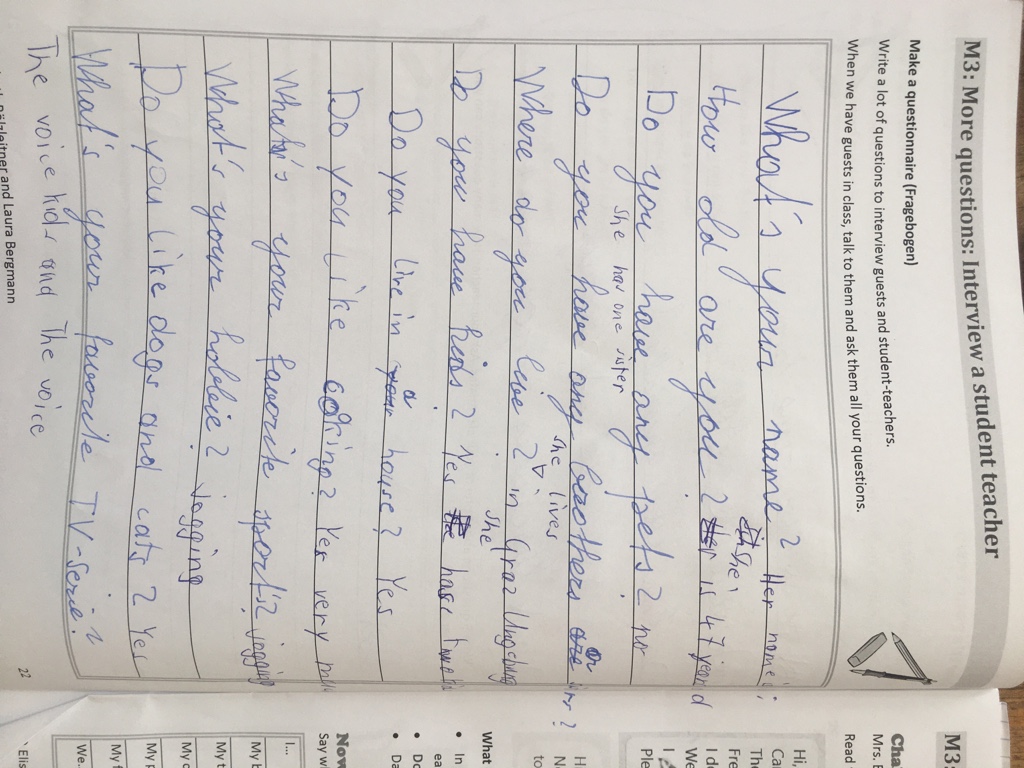 M3: More questions: Interview a student teacher
Make a questionnaire (Fragebogen)
Write a lot of questions to interview guests and student-teachers.
When we have guests in class, talk to them and ask them all your questions.
What's your name? Her name i
she
How old are you? is 47 year
Do you have any pets? no
she has one sister
Do you have any brothers or
she lives
Where do you live? in Graz Umgebung
she
Do you have kids? Yes have
Do you live in a house? Yes
Do you like cooking? Yes very mu
What's your favorite sport? jogging
What's your hobbie? jogging
Do you like dogs and cats? Yes
What's your favorite TV-serie?
The voice kids and The voice
and Laura Bergmann
22
M3:
Cha
Mrs. E
Read
Hi,
Ca
The
Fre
I d
We
I
Ple
Hi
N
to
What
• In
ea
• Do
• Da
Now
Say w
I...
My b
My t
My c
My p
My f
We..
Elis